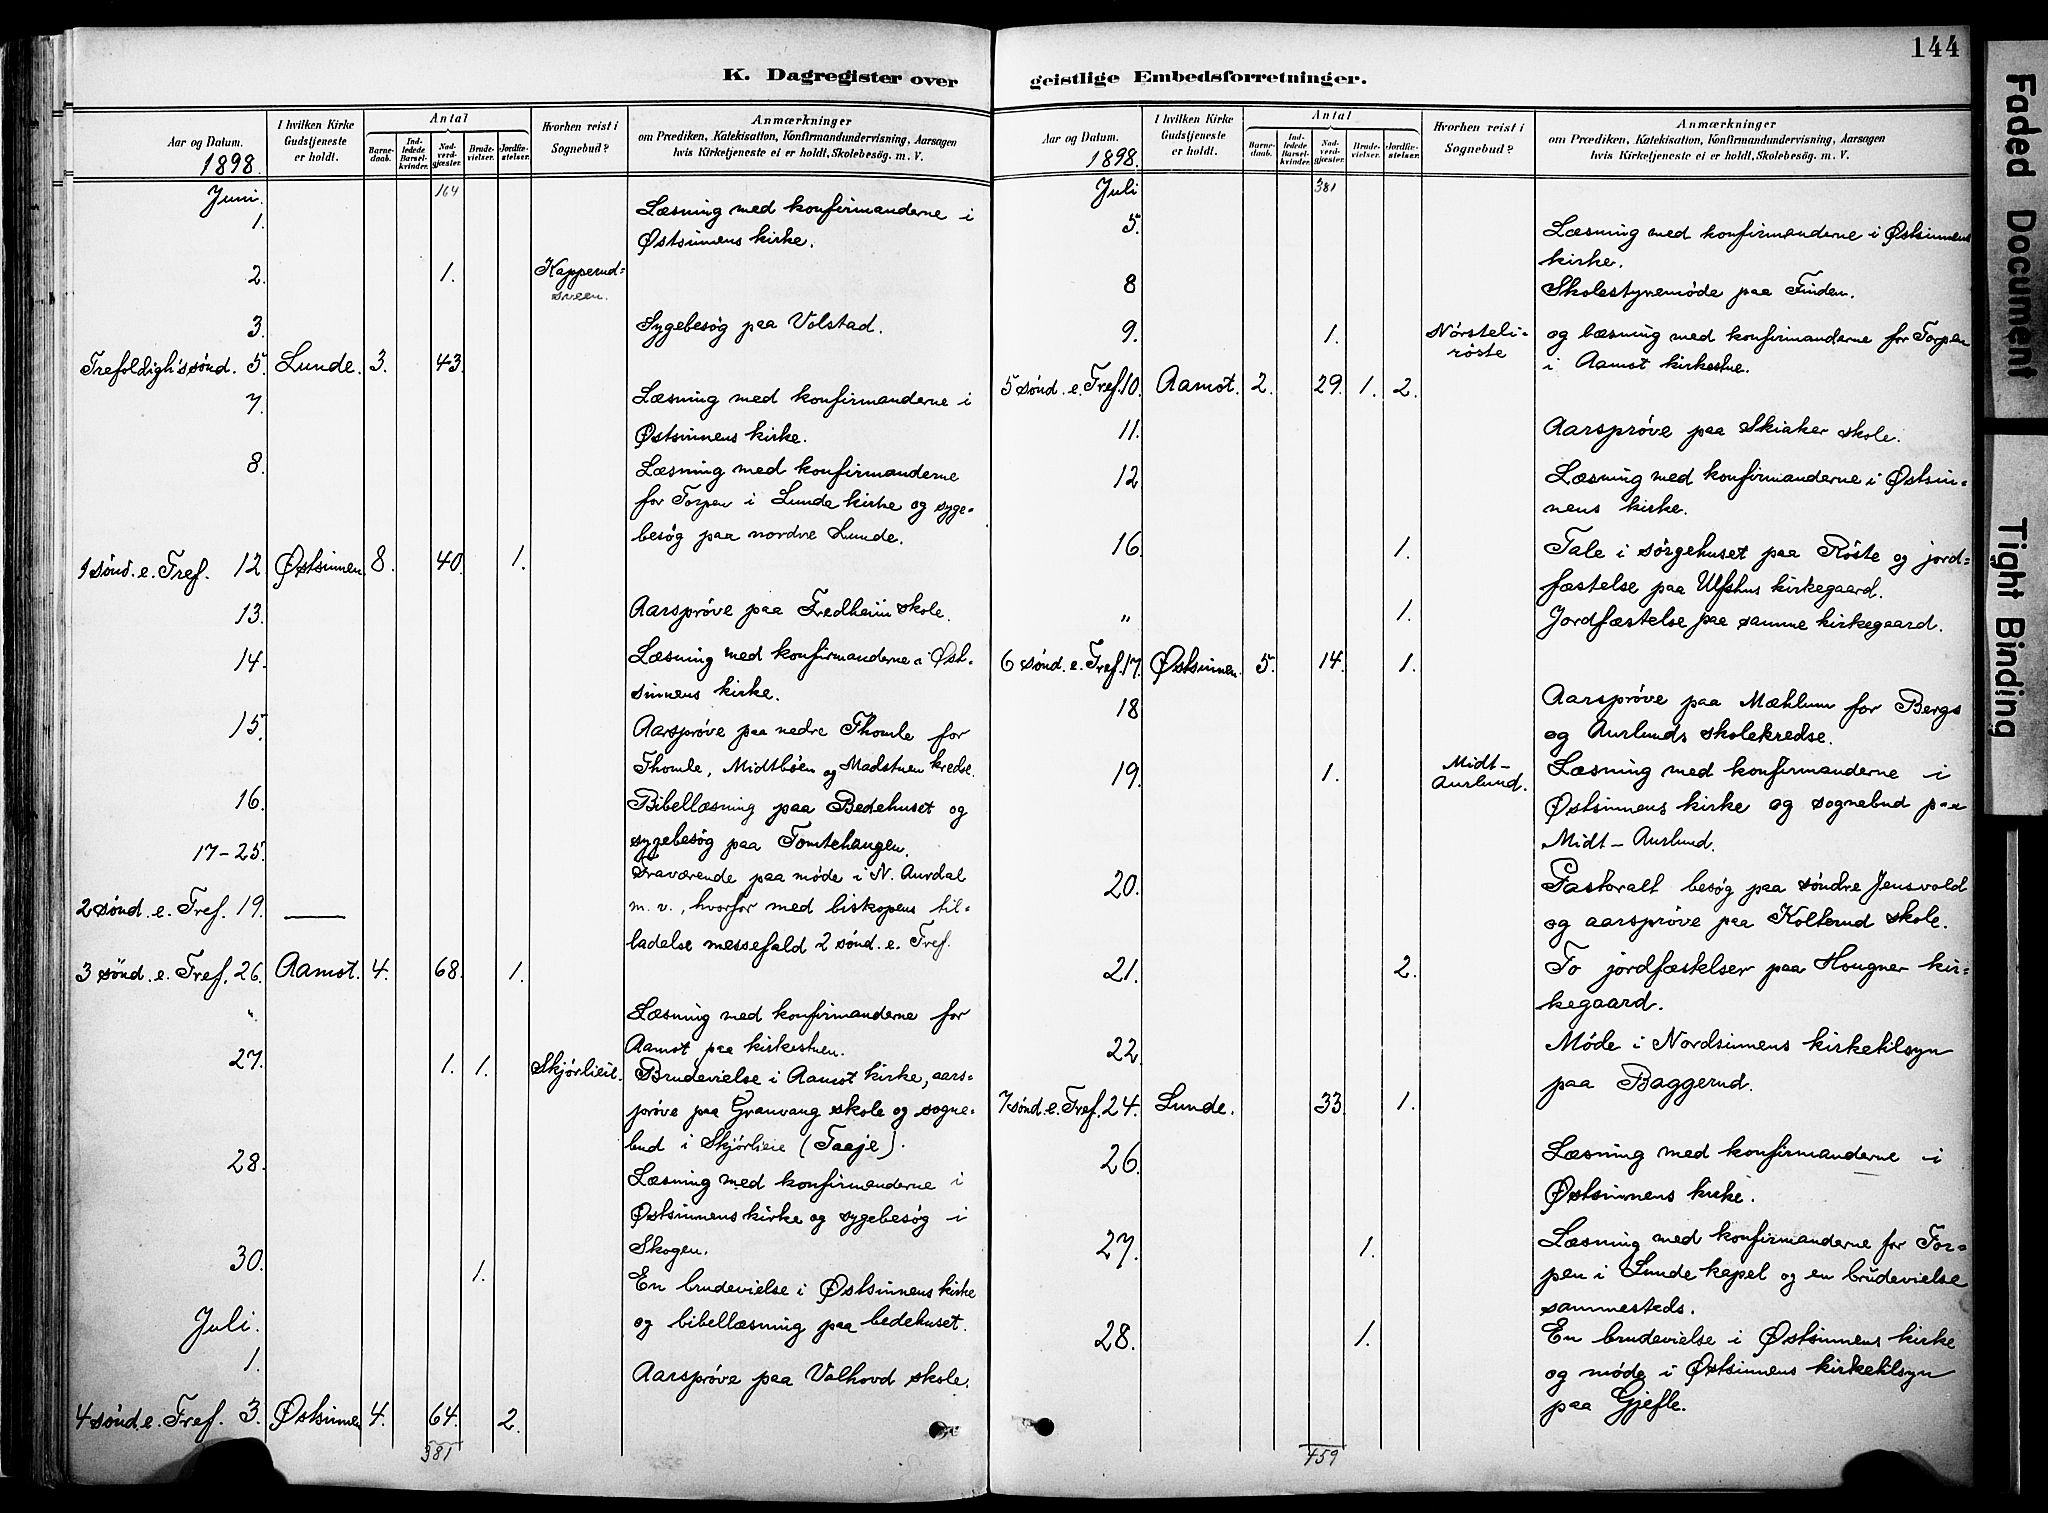 144
K. Dagregister over geistlige Embedsforretninger.
Aar og Datum. 1898.
I hvilken Kirke Gudstjeneste er holdt.
Antal
Barnedaab.
Indledede Barselkvinder.
Nadverdgjæster.
Brudevielser.
Jordfæstelser.
Hvorhen reist i Sognebud?
Anmærkninger
om Prædiken, Katekisation, Konfirmandundervisning, Aarsagen
hvis Kirketjeneste ei er holdt, Skolebesøg. m. V.
Juni. 164
1. Læsning med konfirmanderne i
Østsinnens kirke.
2. 1. Kapperud-
sveen.
3. Sygebesøg paa Volstad.
Trefoldigh's sønd. 5. Lunde. 3. 43.
7. Læsning med konfirmanderne i
Østsinnens kirke.
8. Læsning med konfirmanderne
for Torpen i Lunde kirke og syge-
besøg paa nordre Lunde.
1 sønd. e. Tref. 12 Østsinnen. 8. 40. 1.
13. Aarsprøve paa Fredheim skole.
14. Læsning med konfirmanderne i Øst-
sinnens kirke.
15. Aarsprøve paa nedre Thomle for
Thomle, Midtbøen og Madstuen kredse.
16. Bibellæsning paa Bedehuset og
sygebesøg paa Tomtehaugen.
17-25. Fraværende paa møde i N. Aurdal
2 sønd. e. Tref. 19. — m. v., hvorfor med biskopens til-
ladelse messefald 2 sønd. e. Tref.
3 sønd. e. Tref. 26. Aamot. 4. 68. 1.
" Læsning med konfirmanderne for
Aamot paa kirkestuen.
27. 1. 1. Skjørlieie. Brudevielse i Aamot kirke, aars-
prøve paa Granvang skole og sogne-
bud i Skjørlieie (Taaje).
28. Læsning med konfirmanderne i
Østsinnens kirke og sygebesøg i
Skogen.
30. 1. En brudevielse i Østsinnens kirke
og bibellæsning paa bedehuset.
Juli.
1. Aarsprøve paa Valhovd skole.
4 sønd. e. Tref. 3. Østsinnen 4. 64. 2.
381
Aar og Datum. 1898.
I hvilken Kirke Gudstjeneste er holdt.
Antal
Barnedaab.
Indledede Barselkvinder.
Nadverdgjæster.
Brudevielser.
Jordfæstelser.
Hvorhen reist i Sognebud?
Anmærkninger
om Prædiken, Katekisation, Konfirmandundervisning, Aarsagen
hvis Kirketjeneste ei er holdt, Skolebesøg. m. V.
Juli 381
5. Læsning med konfirmanderne i Østsinnens
kirke.
8 Skolestyremøde paa Finden.
9. 1. Nørsteli-
røste og læsning med konfirmanderne for Torpen
i Aamot kirkestue.
5 sønd. e. Tref. 10. Aamot. 2. 29. 1. 2.
11. Aarsprøve paa Skiaker skole.
12 Læsning med konfirmanderne i Østsin-
nens kirke.
16. 1. Tale i sørgehuset paa Røste og jord-
fæstelse paa Ulfshus kirkegaard.
" 1. Jordfæstelse paa samme kirkegaard.
6 sønd. e. Tref. 17. Østsinnen. 5. 14. 1.
18 Aarsprøve paa Mæhlum for Bergs
og Aurlunds skolekredse.
19. 1. Midt-
Aurlund. Læsning med konfirmanderne i
Østsinnens kirke og sognebud paa
Midt-Aurlund.
20. Pastoralt besøg paa søndre Jensvold
og aarsprøve paa Kolterud skole.
21. 2. To jordfæstelser paa Hougner kir-
kegaard.
22. Møde i Nordsinnens kirketilsyn
paa Baggerud.
7 sønd. e. Tref. 24. Lunde. 33. 1.
26. Læsning med konfirmanderne i
Østsinnens kirke.
27. 1. Læsning med konfirmanderne for Tor-
pen i Lunde kapel og en brudevielse
sammesteds.
28. 1. En brudevielse i Østsinnens kirke
og møde i Østsinnens kirketilsyn
paa Gjefle.
459
Faded Document
Tight Binding